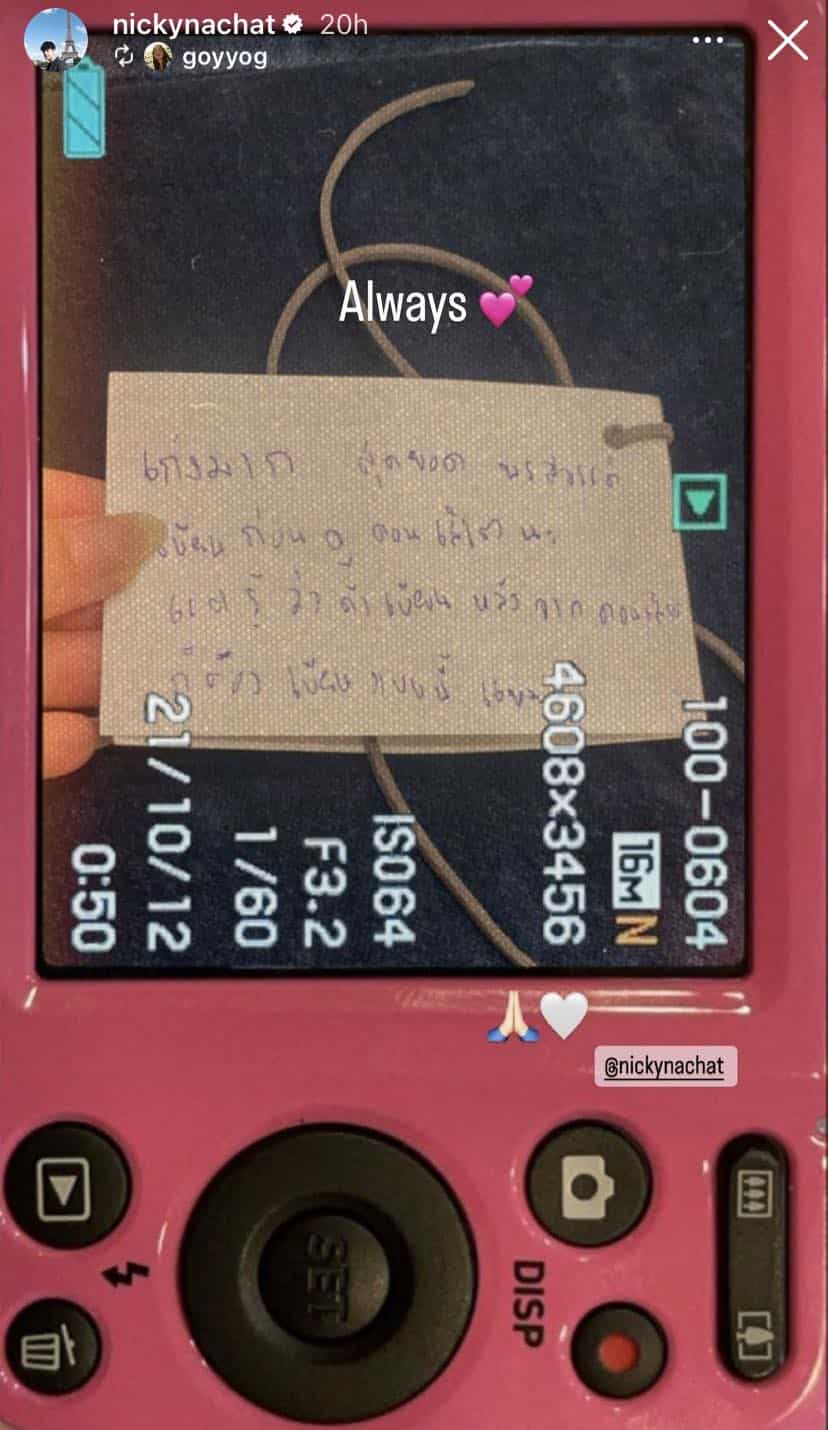 nickynachat 20h
goyyog
Always
เก่งมาก สุดยอด พรสวรรค์
เขียน ก่อน ดู ตอน
แต่ รู้ ว่า ถ้า เขียน หลัง จาก ตอน
ก็ต้อง เขียน แบบนี้
100-0604
16M N
4608×3456
ISO64
F3.2
1/60
21/10/12
0:50
@nickynachat
SET
DISP